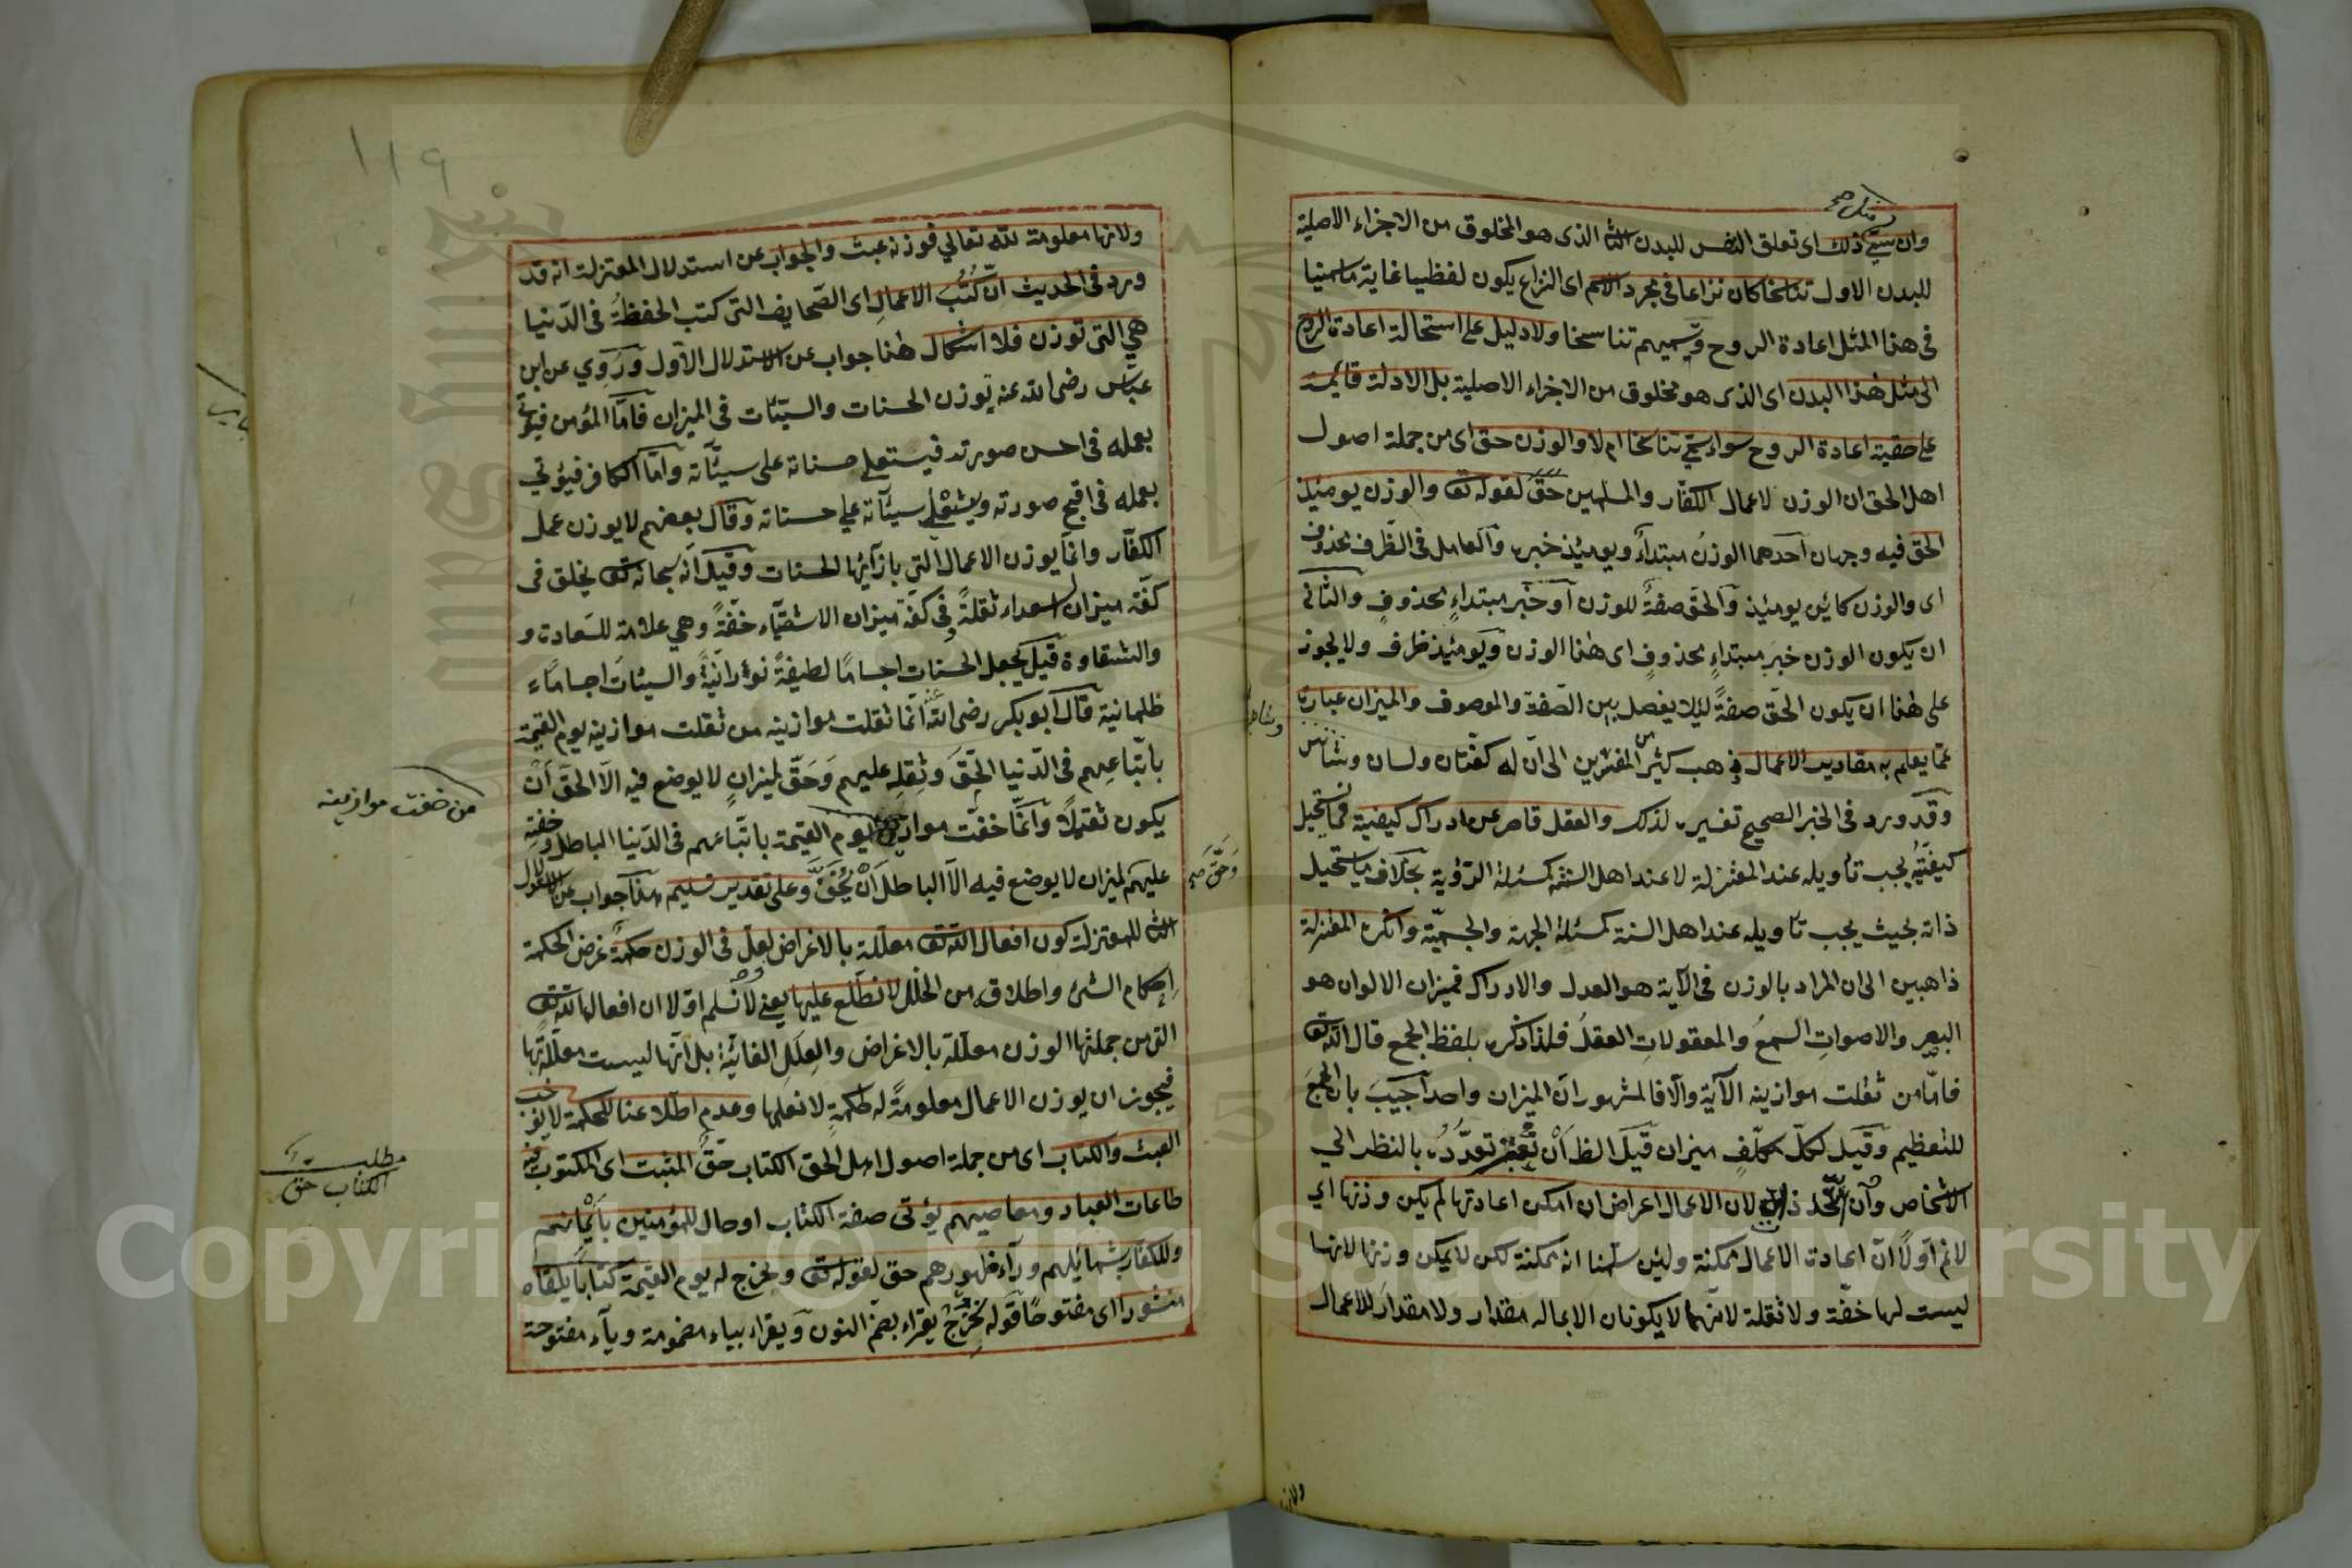 مثل صح
وان سمي ذلك اى تعلق النفس للبدن الثا الذى هو المخلوق من الاجزاء الاصلية
للبدن الاول تناسخا كان نزاعا فى مجرد الاسم اى النزاع يكون لفظيا غاية ما سمينا
فى هذا المثل اعادة الروح وتسميهم تناسخا ولا دليل على استحالة اعادة الروح
الى مثل هذا البدن اى الذى هو مخلوق من الاجزاء الاصلية بل الادلة قايمة
على حقية اعادة الروح سواء سمي تناسخا ام لا والوزن حق اى من جملة اصول
اهل الحق ان الوزن لاعمال الكفار والمسلمين حق لقوله تع والوزن يومئذ
الحق فيه وجهان احدهما الوزن مبتداء ويومئذ خبره والعامل فى الظرف محذوف
اى والوزن كائن يومئذ والحق صفة للوزن او خبر مبتداء محذوف والثانى
ان يكون الوزن خبر مبتداء محذوف اى هذا الوزن ويومئذ ظرف ولا يجوز
على هذا ان يكون الحق صفة ليلا يفصل بين الصفة والموصوف والميزان عبارة
عما يعلم به مقادير الاعمال ذهب كثير من المفسرين الى ان له كفتان ولسان
وقد ورد فى الخبر الصحيح تفسيره لذلك والعقل قاصر عن ادراك كيفية فما يستحيل
كيفيته يجب تأويله عند المعتزلة لا عند اهل السنة كمسئلة الرؤية بخلاف ما يستحيل
ذاته بحيث يجب تأويله عند اهل السنة كمسئلة الجهة والجسمية وانكره المعتزلة
ذاهبين الى ان المراد بالوزن فى الآية هو العدل والادراك فميزان الالوان هو
البصر والاصوات السمع والمعقولات العقل فلذا ذكره بلفظ الجمع قال الله تع
فاما من ثقلت موازينه الآية والا فالمشهور ان الميزان واحد اجيب بان الجمع
للتعظيم وقيل لكل مكلف ميزان قيل الظ ان يعتبر تعدده بالنظر الى
الاشخاص وان اتحد ذاته لان الاعمال اعراض ان امكن اعادتها لم يكن وزنها اي
لانم اولا ان اعادة الاعمال ممكنة ولئن سلمنا انه ممكنة لكن لا يمكن وزنها لانها
ليست لها خفة ولا ثقلة لانهما لا يكونان الا بماله مقدار ولا مقدار للاعمال
ولانها
١١٩
ولانها معلومة لله تعالي فوزنه عبث والجواب عن استدلال المعتزلة انه قد
ورد فى الحديث ان كتب الاعمال اى الصحايف التى كتب الحفظة فى الدنيا
هي التى توزن فلا اشكال هذا جواب عن الاستدلال الاول وروي عن ابن
عباس رضى الله عنه توزن الحسنات والسيئات فى الميزان فاما المؤمن فيؤتي
بعمله فى احسن صورته فيستعلي حسناته على سيئاته واما الكافر فيؤتي
بعمله فى اقبح صورته سيئاته علي حسناته وقال بعضهم لا يوزن عمل
الكفار وانما يوزن الاعمال التي بازائها الحسنات وقيل انه سبحانه تع يخلق فى
كفة ميزان السعداء ثقلة وفي كفة ميزان الاشقياء خفة وهي علامة للسعادة و
والشقاوة قيل يجعل الحسنات اجساما لطيفة نورانية والسيئات اجساما
ظلمانية قال ابو بكر رضى الله عنه انما ثقلت موازينه من ثقلت موازينه يوم القيمة
باتباعهم فى الدنيا الحق وثقله عليهم وحق لميزان لا يوضع فيه الا الحق ان
يكون ثقيلا وانما خفت موازين يوم القيمة باتباعهم فى الدنيا الباطل وخفته
عليهم لميزان لا يوضع فيه الا الباطل ان يخف وعلى تقدير تسليم هذا جواب عن الاستدلال
الثا للمعتزلة كون افعال الله تع معللة بالاغراض لعل فى الوزن حكمة غرض الحكمة
احكام الشئ واطلاقه من الخلل لا نطلع عليها يعني لا نسلم اولا ان افعال الله تع
التى من جملتها الوزن معللة بالاغراض والعلل الغائية بل انها ليست معللة بها
فيجوز ان يوزن الاعمال معلومة له لحكمة لا نعلمها وعدم اطلاعنا للحكمة لا يوجب
العبث والكتاب اى من جملة اصول اهل الحق الكتاب حق المثبت اى المكتوب فيه
طاعات العباد ومعاصيهم يؤتى صفة الكتاب او حال للمؤمنين بأيمانهم
وللكفار بشمائلهم ورآء ظهورهم حق لقوله تع ونخرج له يوم القيمة كتابا يلقاه
منشورا اى مفتوحا قوله نخرج يقراء بضم النون ويقراء بياء مضمومة وياء مفتوحة
من خفت موازينه
وحق صح
مطلب
الكتاب حق
Copyright © King Saud University